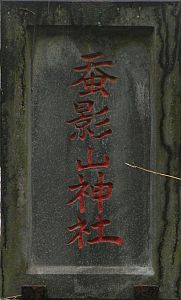 蚕影山神社